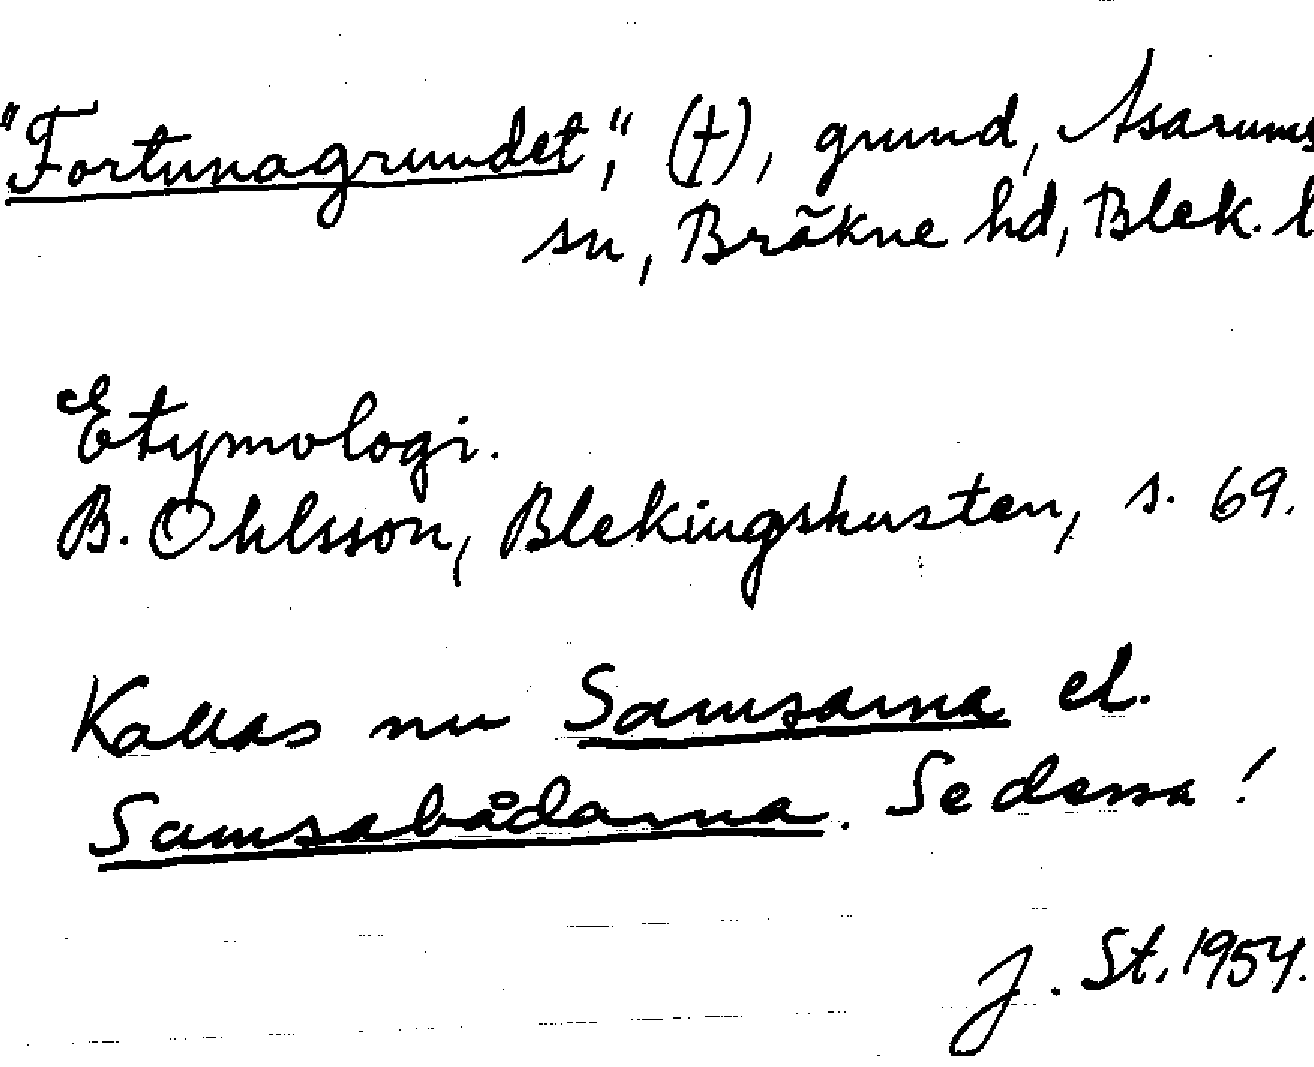 "Fortunagrundet", (†), grund, Asarums
sn, Bräkne hd, Blek. l
Etymologi.
B. Ohlsson, Blekingskusten, s. 69.
Kallas nu Samsarna el.
Samsabådarna. Se dessa!
J. St. 1954.